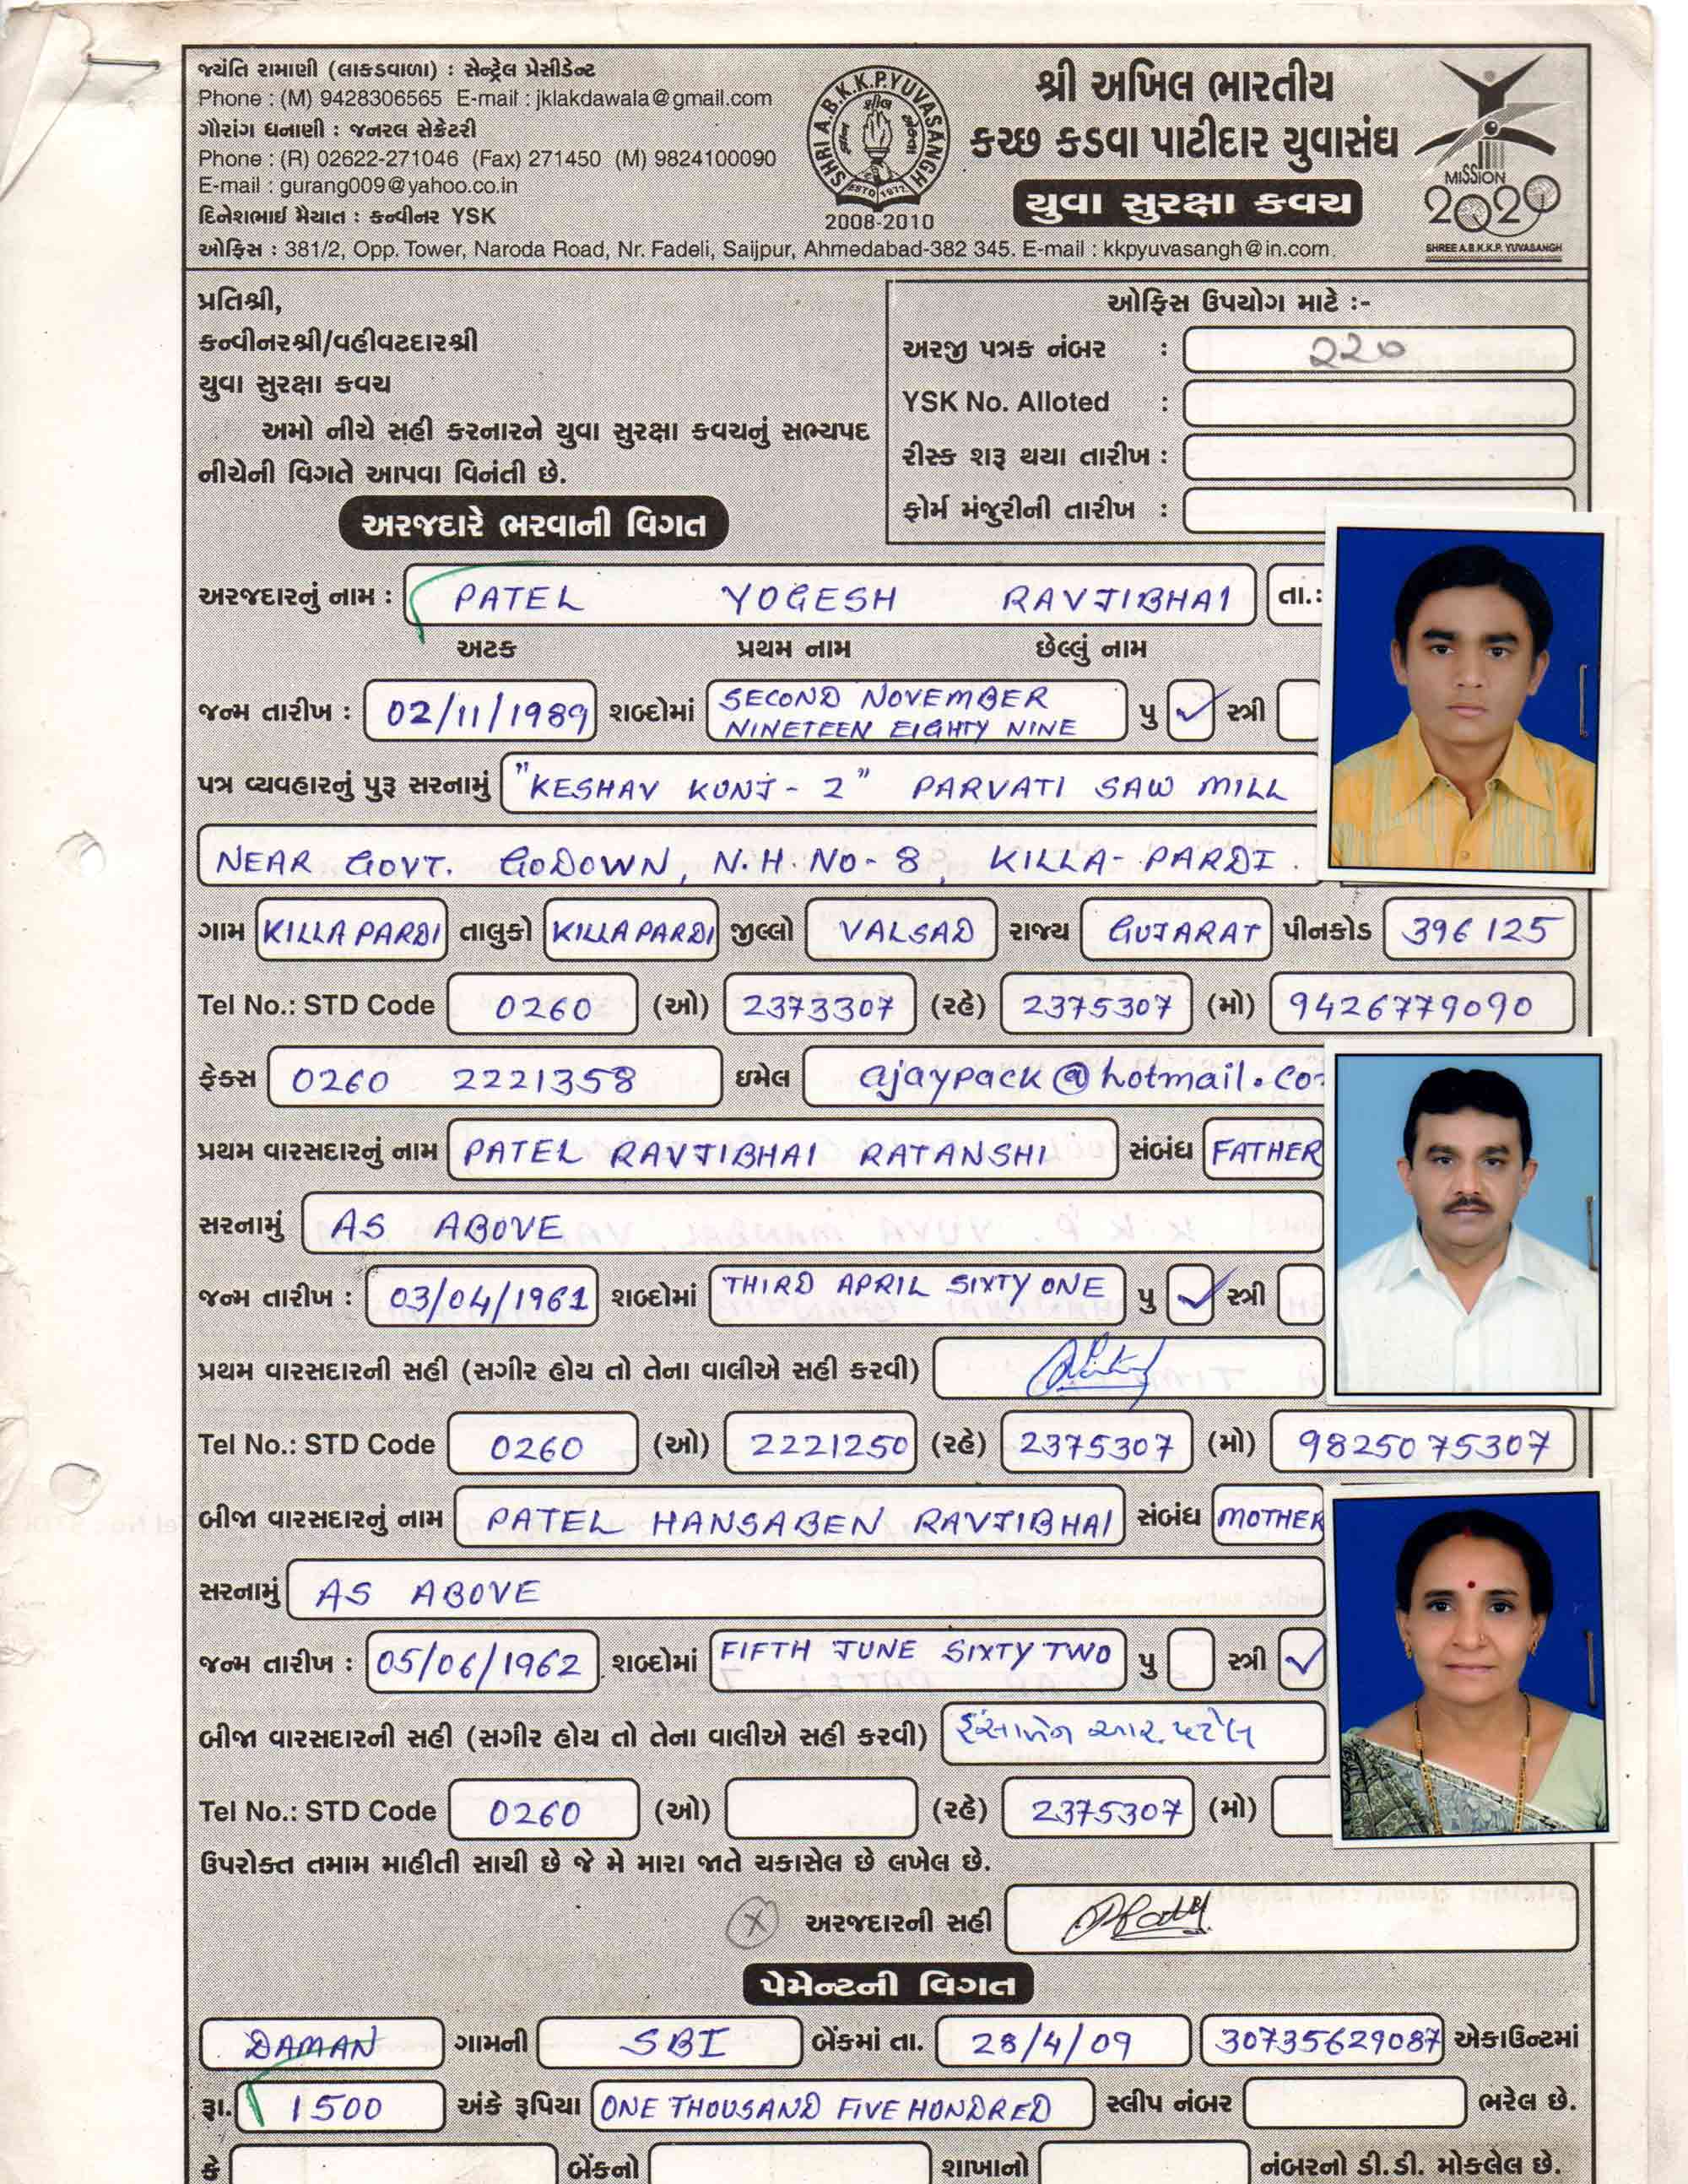 જયંતિ રામાણી (લાકડાવાળા) : સેન્ટ્રલ પ્રેસીડેન્ટ
Phone : (M) 9428306565 E-mail : jklakdawala@gmail.com
ગૌરાંગ ધનાણી : જનરલ સેક્રેટરી
Phone : (R) 02622-271046 (Fax) 271450 (M) 9824100090
E-mail : gurang009@yahoo.co.in
દિનેશભાઈ મૈયાત : કન્વીનર YSK
SHRI A.B.K.K.P.YUVASANGH
ESTD 1977
2008-2010
શ્રી અખિલ ભારતીય
કચ્છ કડવા પાટીદાર યુવાસંઘ
યુવા સુરક્ષા કવચ
MISSION
2020
SHREE A.B.K.K.P. YUVASANGH
ઓફિસ : 381/2, Opp. Tower, Naroda Road, Nr. Fadeli, Saijpur, Ahmedabad-382 345. E-mail : kkpyuvasangh@in.com.
પ્રતિશ્રી,
કન્વીનરશ્રી/વહીવટદારશ્રી
યુવા સુરક્ષા કવચ
અમો નીચે સહી કરનારને યુવા સુરક્ષા કવચનું સભ્યપદ
નીચેની વિગતે આપવા વિનંતી છે.
ઓફિસ ઉપયોગ માટે :-
અરજી પત્રક નંબર : 220
YSK No. Alloted :
રીસ્ક શરૂ થયા તારીખ :
ફોર્મ મંજુરીની તારીખ :
અરજદારે ભરવાની વિગત
અરજદારનું નામ : PATEL YOGESH RAVJIBHAI તા.:
અટક પ્રથમ નામ છેલ્લું નામ
જન્મ તારીખ : 02/11/1989 શબ્દોમાં SECOND NOVEMBER NINETEEN EIGHTY NINE પુ ✓ સ્ત્રી
પત્ર વ્યવહારનું પુરૂ સરનામું "KESHAV KUNJ - 2" PARVATI SAW MILL
NEAR GOVT. GODOWN, N.H. NO - 8, KILLA - PARDI.
ગામ KILLA PARDI તાલુકો KILLA PARDI જીલ્લો VALSAD રાજ્ય GUJARAT પીનકોડ 396125
Tel No.: STD Code 0260 (ઓ) 2373307 (રહે) 2375307 (મો) 9426779090
ફેક્સ 0260 2221358 ઇમેલ ajaypack@hotmail.co
પ્રથમ વારસદારનું નામ PATEL RAVJIBHAI RATANSHI સંબંધ FATHER
સરનામું AS ABOVE
જન્મ તારીખ : 03/04/1961 શબ્દોમાં THIRD APRIL SIXTY ONE પુ ✓ સ્ત્રી
પ્રથમ વારસદારની સહી (સગીર હોય તો તેના વાલીએ સહી કરવી)
Tel No.: STD Code 0260 (ઓ) 2221250 (રહે) 2375307 (મો) 9825075307
બીજા વારસદારનું નામ PATEL HANSABEN RAVJIBHAI સંબંધ MOTHER
સરનામું AS ABOVE
જન્મ તારીખ : 05/06/1962 શબ્દોમાં FIFTH JUNE SIXTY TWO પુ સ્ત્રી ✓
બીજા વારસદારની સહી (સગીર હોય તો તેના વાલીએ સહી કરવી) હંસાબેન આર. પટેલ
Tel No.: STD Code 0260 (ઓ) (રહે) 2375307 (મો)
ઉપરોક્ત તમામ માહીતી સાચી છે જે મે મારા જાતે ચકાસેલ છે લખેલ છે.
અરજદારની સહી
પેમેન્ટની વિગત
DAMAN ગામની SBI બેંકમાં તા. 28/4/09 30735629087 એકાઉન્ટમાં
રૂા. 1500 અંકે રૂપિયા ONE THOUSAND FIVE HUNDRED સ્લીપ નંબર ભરેલ છે.
કે બેંકનો શાખાનો નંબરનો ડી.ડી. મોકલેલ છે.